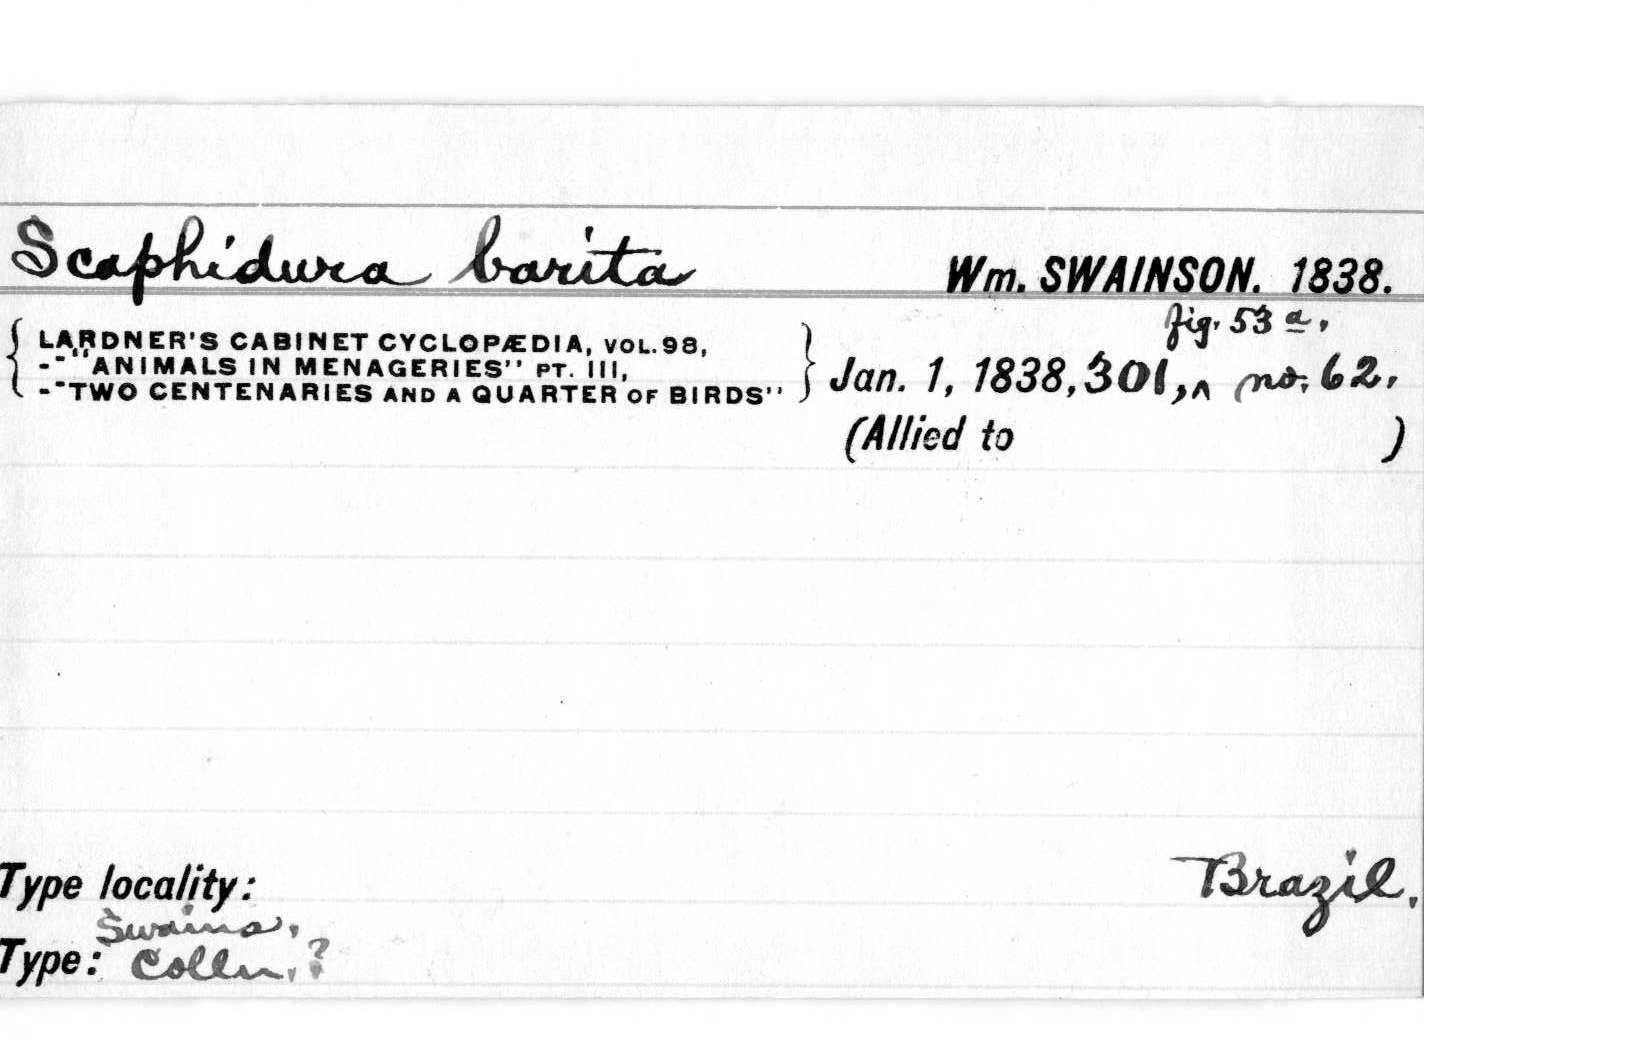 Scaphidura barita Wm. SWAINSON. 1838.
fig. 53 a.
{ LARDNER'S CABINET CYCLOPÆDIA, VOL. 98,
-"ANIMALS IN MENAGERIES" PT. III,
-"TWO CENTENARIES AND A QUARTER OF BIRDS" } Jan. 1, 1838, 301,^ no. 62.
(Allied to )
Type locality: Brazil.
Swains.
Type: Colln.?